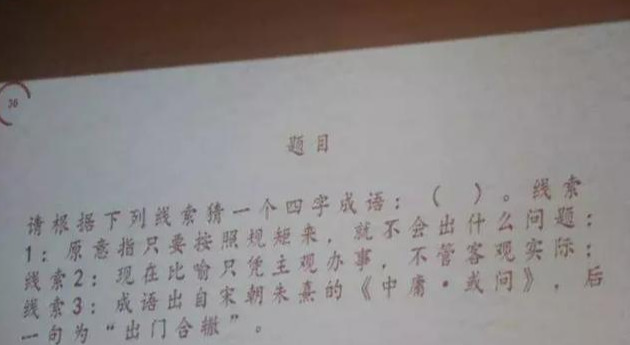 36
题目
请根据下列线索猜一个四字成语：（ ）。线索
1：原意指只要按照规矩来，就不会出什么问题；
线索2：现在比喻只凭主观办事，不管客观实际；
线索3：成语出自宋朝朱熹的《中庸·或问》，后
一句为“出门合辙”。